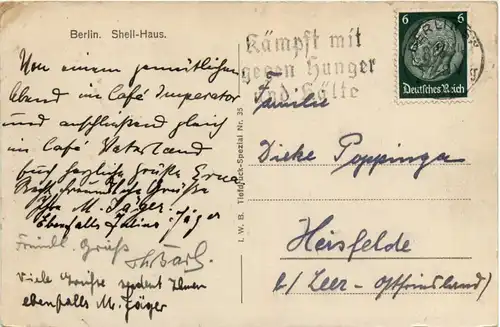 Berlin. Shell-Haus.
Von einem gemütlichen
Abend im Café Imperator
und anschließend gleich
im Café Vaterland
herzliche Grüße Erna
Recht freundliche Grüße
Ihre M. Jäger.
Ebenfalls Julius Jäger
Freundl. Gruß
Viele Grüße sendet Ihnen
ebenfalls M. Jäger
I. W. B. Tiefdruck-Spezial Nr. 35
Kämpft mit
gegen Hunger
und Kälte
6 6
Deutsches Reich
BERLIN
Familie
Dirke Poppinga
Heisfelde
b/ Leer - Ostfriesland